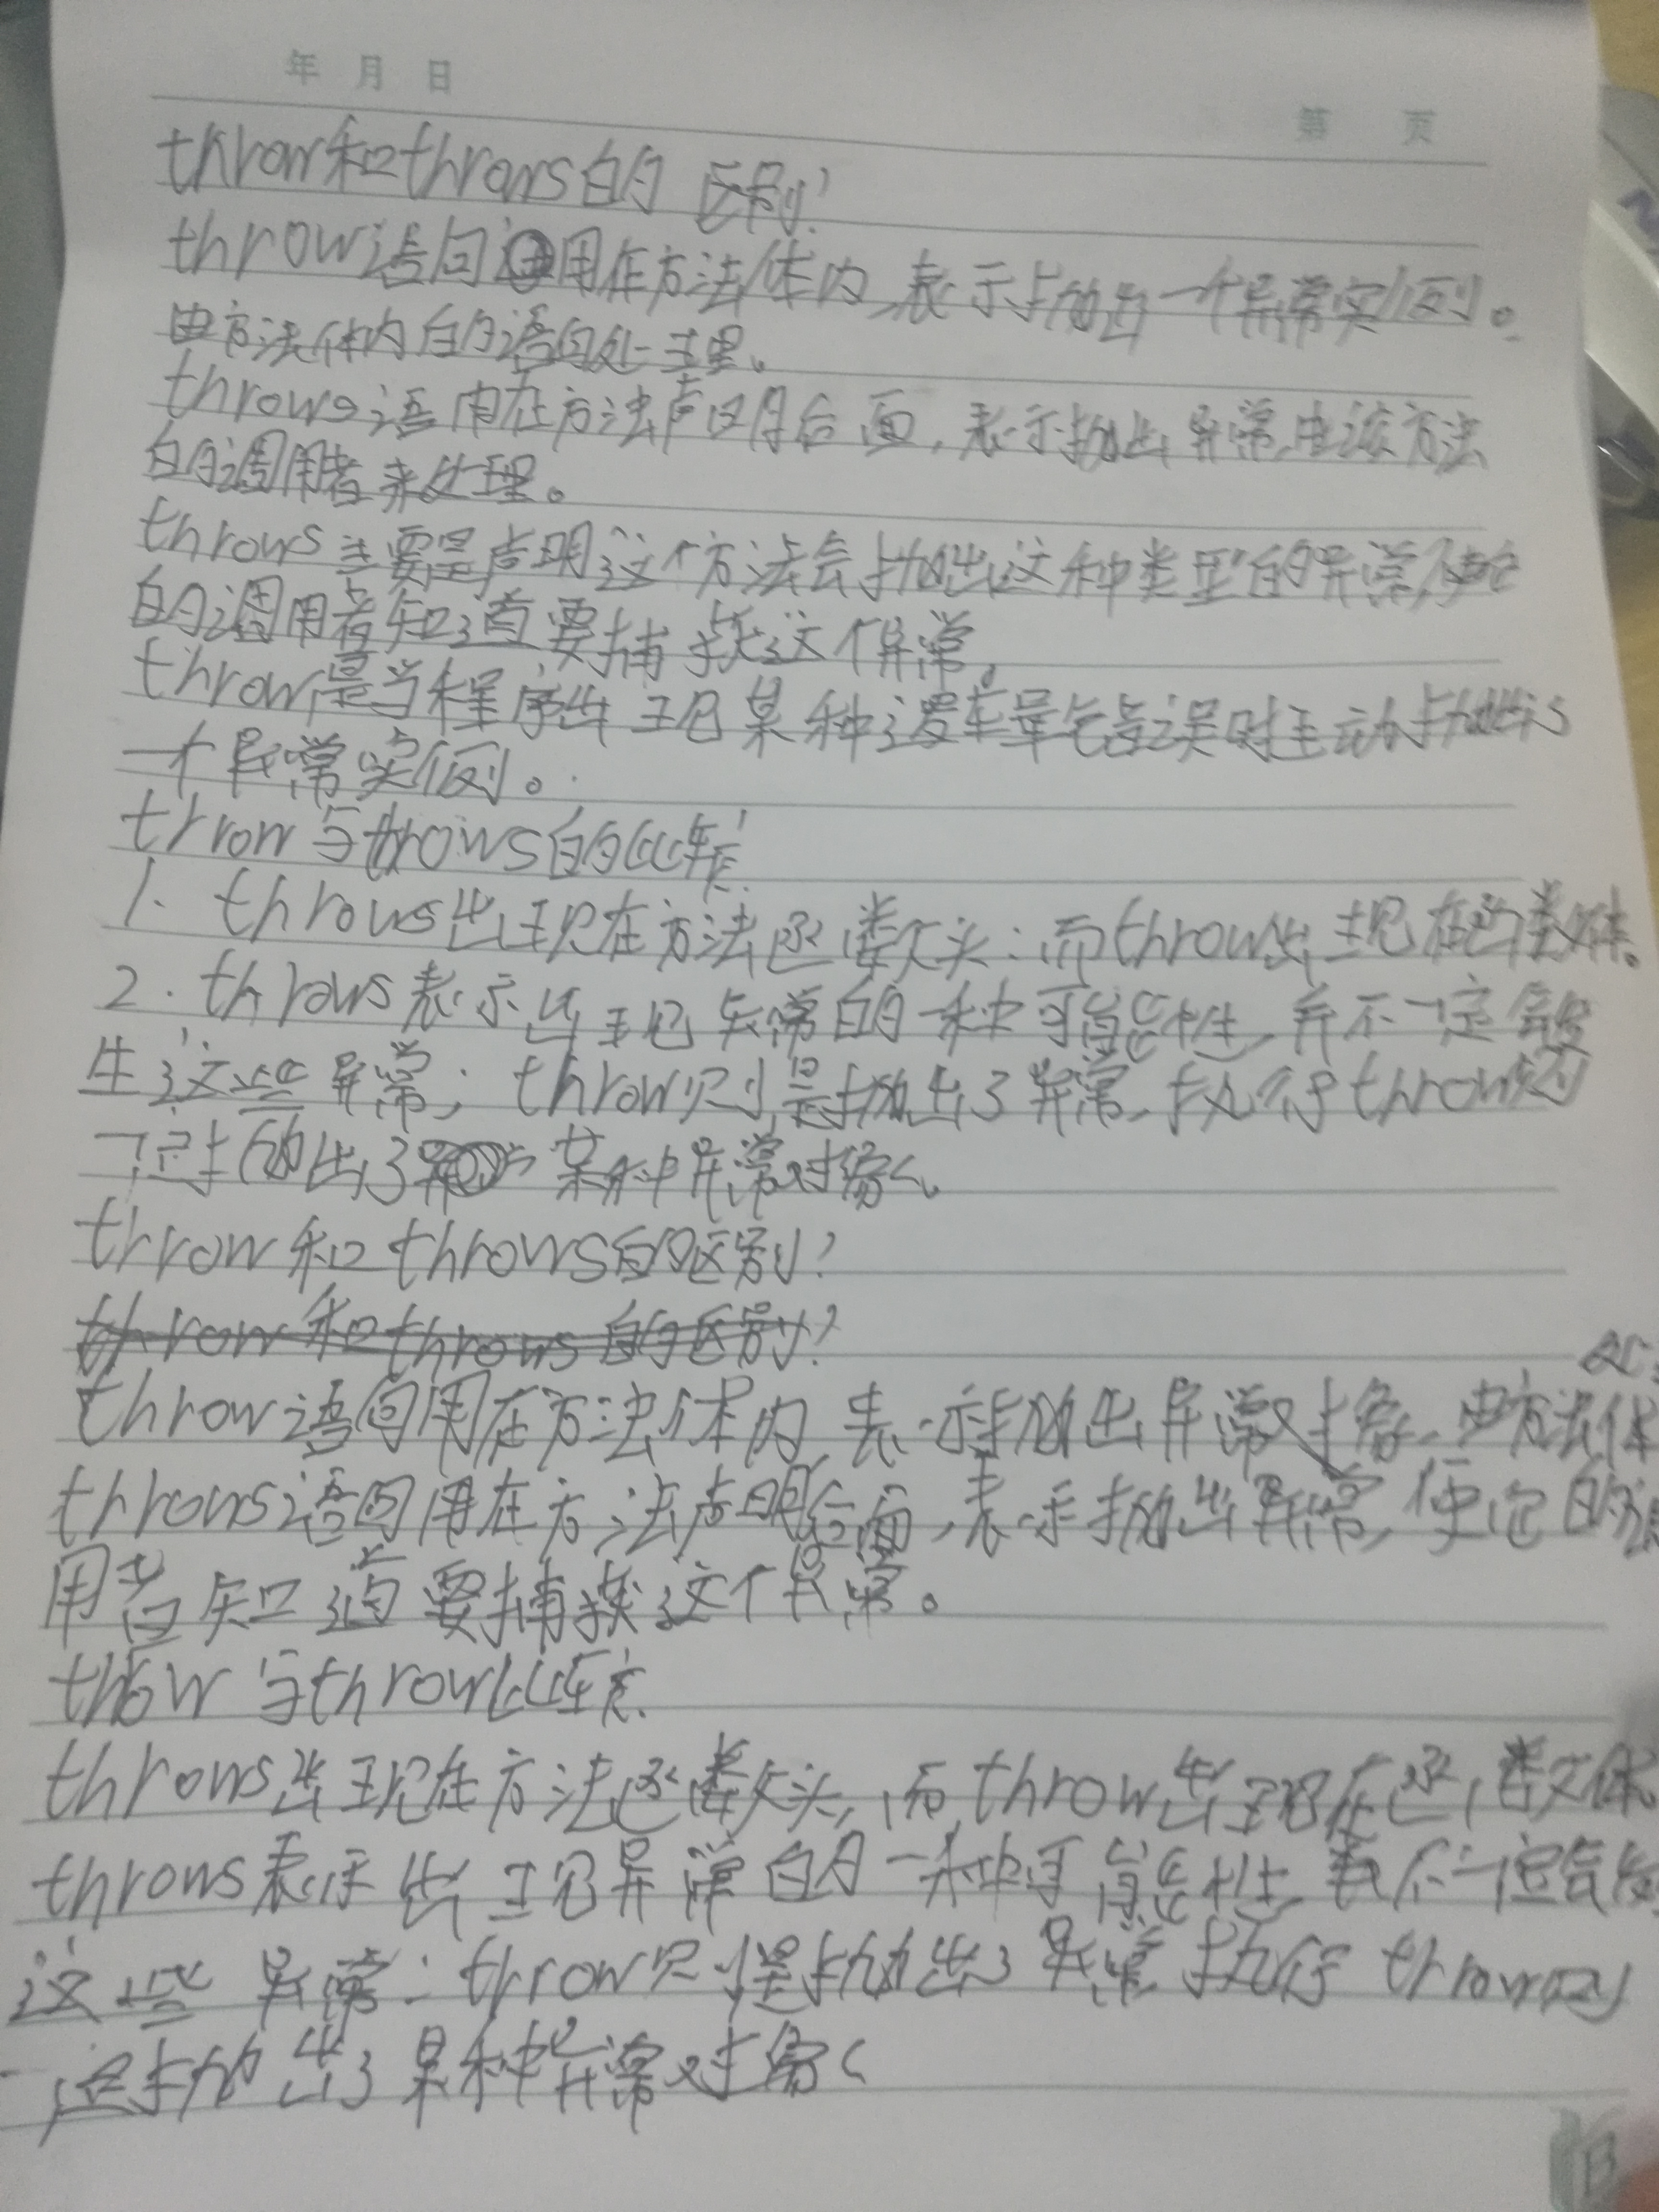 年 月 日
第 页
throw和throws的 区别?
throw语句用在方法体内,表示抛出一个异常实例。
由方法体内的语句处理。
throws语用在方法声明后面,表示抛出异常,由该方法
的调用者来处理。
throws主要是声明这个方法会抛出这种类型的异常,使它
的调用者知道要捕获这个异常。
throw是当程序出现某种逻辑错误时主动抛出
一个异常实例。
throw与throws的比较
1. throws出现在方法函数头:而throw出现在函数体。
2. throws表示出现异常的一种可能性,并不一定会发
生这些异常;throw则是抛出了异常,执行throw则
一定抛出了某种异常对象。
throw和throws的区别?
throw和throws的区别?
throw语句用在方法体内,表示抛出异常对象,由方法体
throws语句用在方法声明后面,表示抛出异常,使它的调
用者知道要捕获这个异常。
throw与throw比较
throws出现在方法函数头,而throw出现在函数体
throws表示出现异常的一种可能性,并不一定会发
这些异常:throw则是抛出了异常 执行throw则
一定抛出了某种异常对象